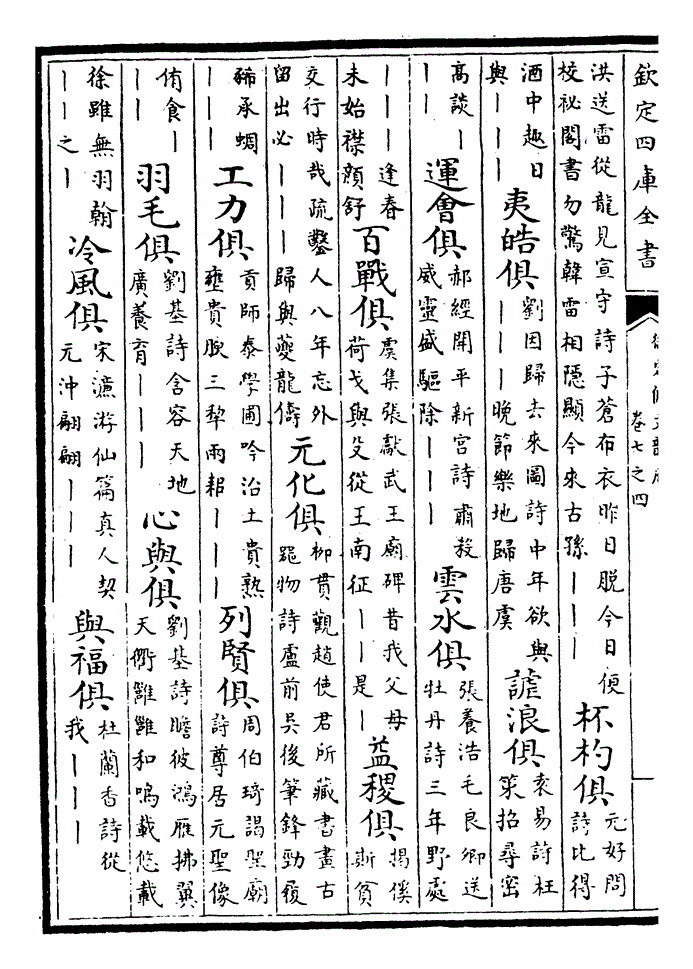 欽定四庫全書
卷七之四
洪送雷從龍見宣守詩子蒼布衣昨日脫今日便
校祕閣書勿驚韓雷相隱顯今來古孫丨丨
杯杓俱
元好問
詩比得
酒中趣日
與丨丨丨
夷皓俱
劉因歸去來圖詩中年欲與
丨丨丨晚節樂地歸唐虞
謔浪俱
袁易詩枉
策招尋密
高談丨
丨丨
運會俱
郝經開平新宮詩肅殺
威靈盛驅除丨丨丨
雲水俱
張養浩毛良卿送
牡丹詩三年野處
丨丨丨逢春
未始襟顏舒
百戰俱
虞集張獻武王廟碑昔我父母
荷戈與殳從王南征丨丨是丨
益稷俱
揭傒
斯貧
交行時哉疏鑿人八年忘外
留出必丨丨丨歸與夔龍儔
元化俱
柳貫觀趙使君所藏書畫古
器物詩盧前吳後筆鋒勁履
豨承蜩
丨丨丨
工力俱
貢師泰學圃吟治土貴熟
壅貴腴三犂兩耙丨丨丨
列賢俱
周伯琦謁聖廟
詩尊居元聖像
侑食丨
丨丨
羽毛俱
劉基詩含容天地
廣養育丨丨丨
心與俱
劉基詩瞻彼鴻雁拂翼
天衢雝雝和鳴載悠載
徐雖無羽翰
丨丨之丨
冷風俱
宋濂游仙篇真人契
元沖翩翩丨丨丨
與福俱
杜蘭香詩從
我丨丨丨